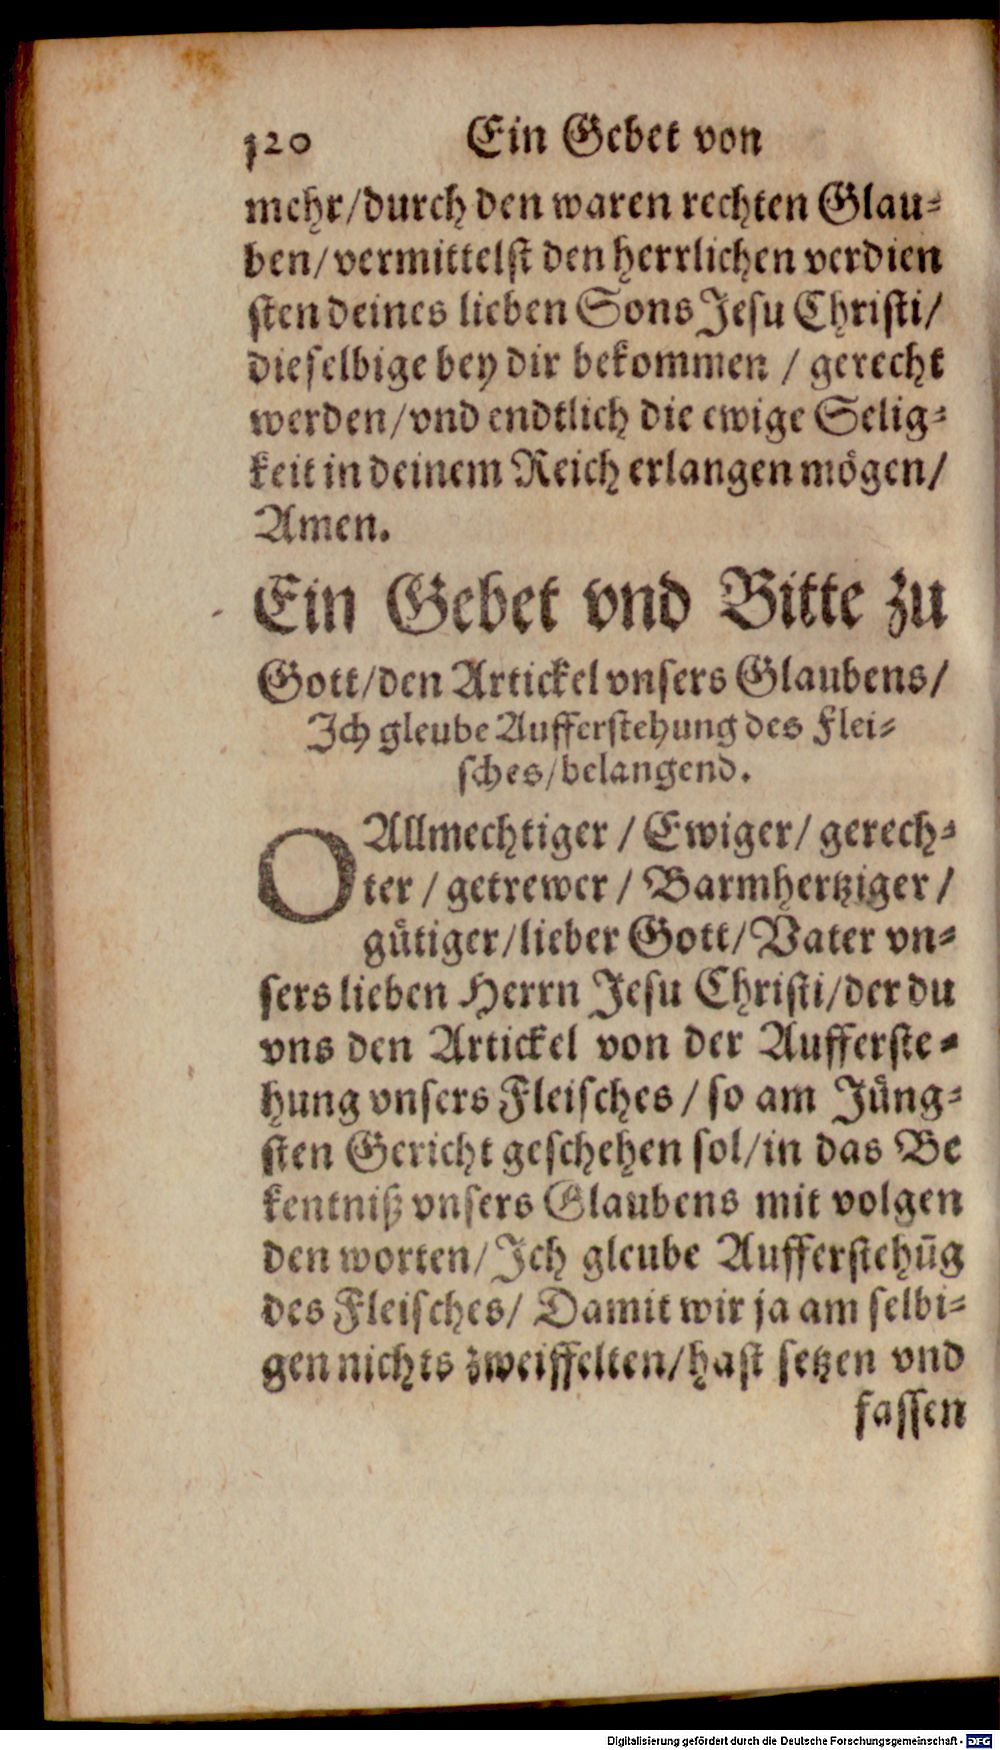 320 Ein Gebet von
mehr/durch den waren rechten Glau⸗
ben/vermittelst den herrlichen verdien
sten deines lieben Sons Jesu Christi/
dieselbige bey dir bekommen / gerecht
werden/vnd endtlich die ewige Selig⸗
keit in deinem Reich erlangen mögen/
Amen.
Ein Gebet vnd Bitte zu
Gott/den Artickel vnsers Glaubens/
Ich gleube Aufferstehung des Flei⸗
sches/belangend.
O Allmechtiger / Ewiger/ gerech⸗
ter / getrewer / Barmhertziger /
gütiger/lieber Gott/Vater vn⸗
sers lieben Herrn Jesu Christi/der du
vns den Artickel von der Aufferste⸗
hung vnsers Fleisches / so am Jüng⸗
sten Gericht geschehen sol/in das Be
kentniß vnsers Glaubens mit volgen
den worten/Ich gleube Aufferstehūg
des Fleisches/ Damit wir ja am selbi⸗
gen nichts zweiffelten/hast setzen vnd
fassen
Digitalisierung gefördert durch die Deutsche Forschungsgemeinschaft - DFG